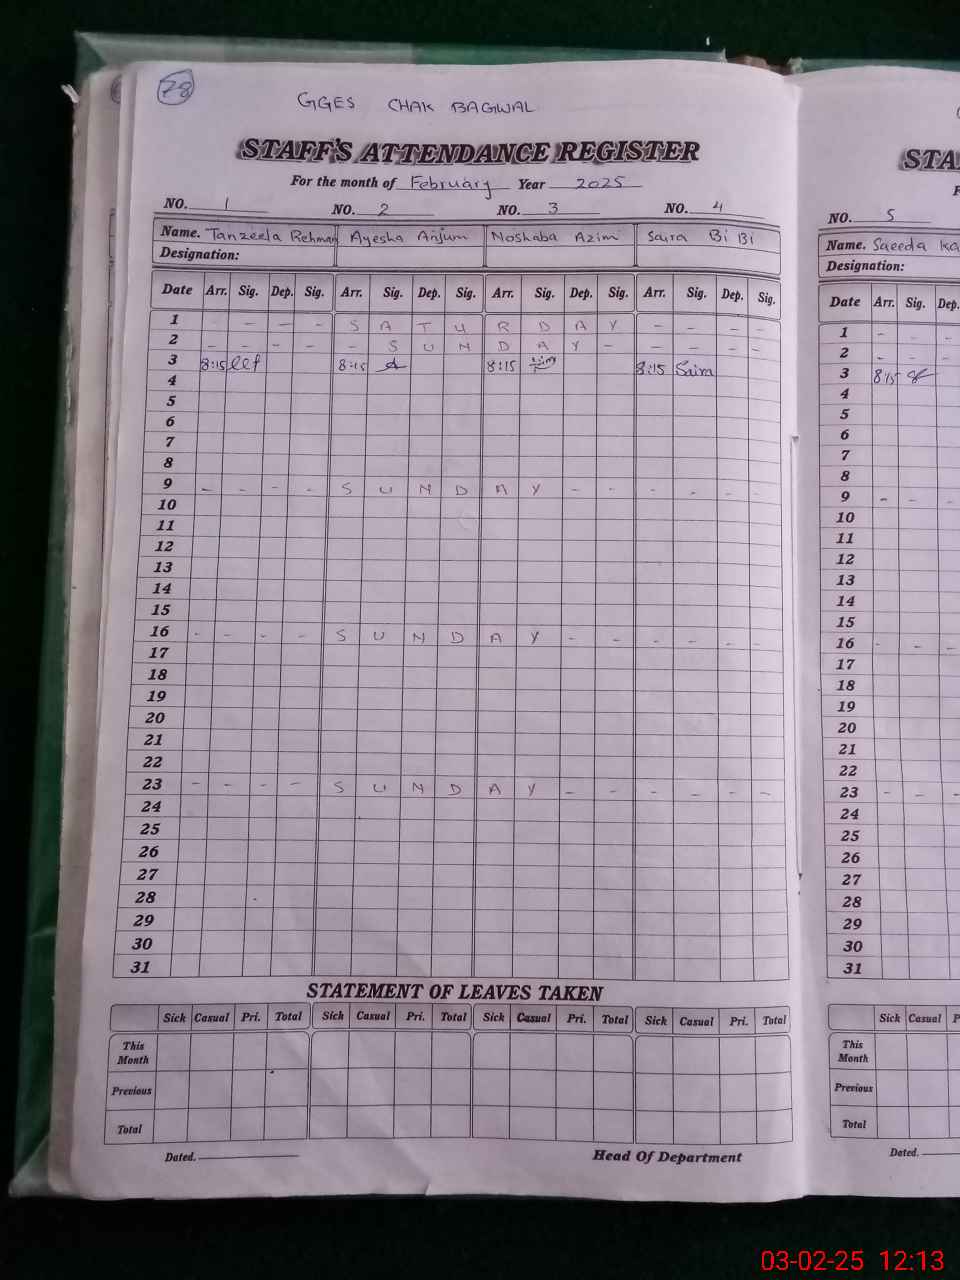 78
GGES CHAK BAGWAL
STAFF'S ATTENDANCE REGISTER
For the month of February Year 2025
NO. 1 NO. 2 NO. 3 NO. 4
Name. Tanzeela Rehman Ayesha Anjum Noshaba Azim Saira Bi Bi
Designation:
Date Arr. Sig. Dep. Sig. Arr. Sig. Dep. Sig. Arr. Sig. Dep. Sig. Arr. Sig. Dep. Sig.
1 - - - S A T U R D A Y - - - -
2 - - - - - S U N D A Y - - - - -
3 8:15 8:15 8:15 8:15 Saira
4
5
6
7
8
9 - - - - S U N D A Y - - - - - -
10
11
12
13
14
15
16 - - - - S U N D A Y - - - - - -
17
18
19
20
21
22
23 - - - - S U N D A Y - - - - - -
24
25
26
27
28
29
30
31
STATEMENT OF LEAVES TAKEN
Sick Casual Pri. Total Sick Casual Pri. Total Sick Casual Pri. Total Sick Casual Pri. Total
This Month
Previous
Total
Dated. Head Of Department
STA
NO. 5
Name. Saeeda
Designation:
Date Arr. Sig. Dep.
1 -
2 - - -
3 8:15
4
5
6
7
8
9 - - -
10
11
12
13
14
15
16 - - -
17
18
19
20
21
22
23 - - -
24
25
26
27
28
29
30
31
Sick Casual P
This Month
Previous
Total
Dated.
03-02-25 12:13